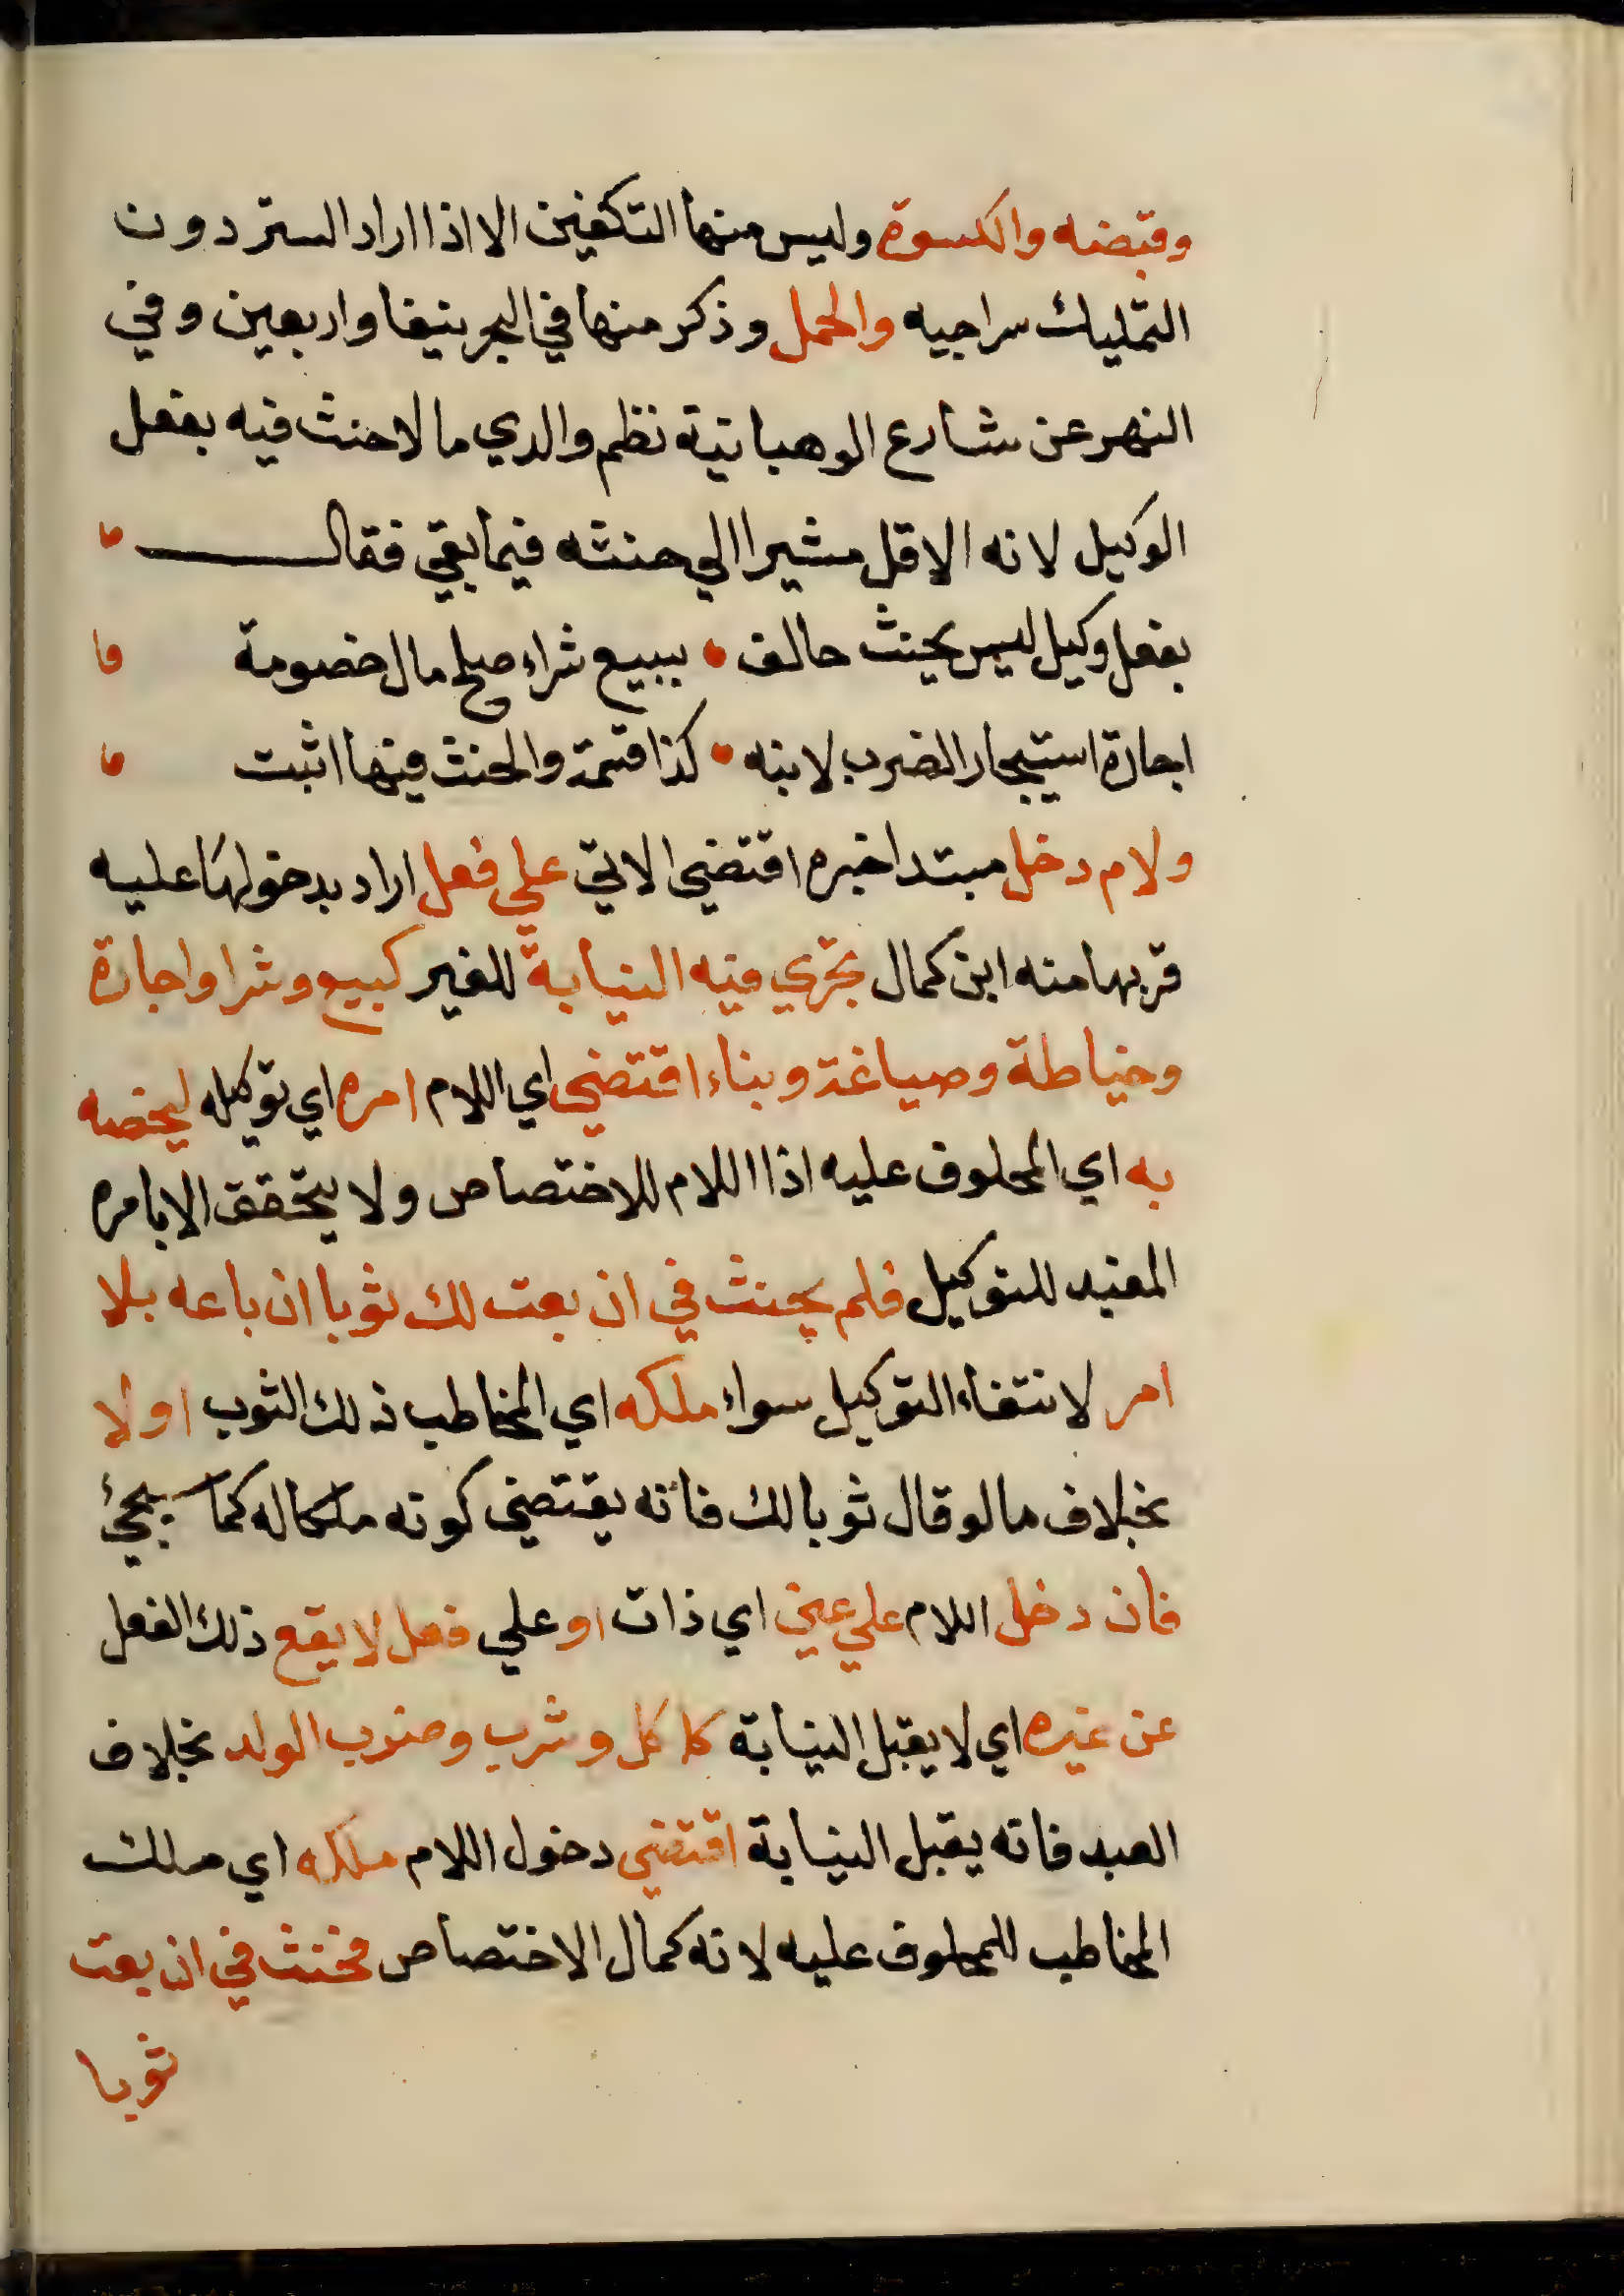 وقبضه والكسوة وليس منها التكفين الا اذا اراد الستر دون
التمليك سراجيه والحمل وذكر منها في البحر نيفا واربعين وفي
النهر عن شارع الوهبانية نظم والدي ما لا حنث فيه بفعل
الوكيل لانه الاقل مشيرا الي حنثه فيما بقي فقال
بفعل وكيل ليس يحنث حالف • ببيع شراء صلح مال خصومة
اجارة استيجار الضرب لابنه • كذا قسمة والحنث فيها اثبت
ولام دخل مبتدا خبره اقتضي الاتي علي فعل اراد بدخولها عليه
قربها منه ابن كمال تجري فيه النيابة للغير كبيع وشرا واجارة
وخياطة وصياغة وبناء اقتضي اي اللام امره اي توكيله ليخصه
به اي المحلوف عليه اذا اللام للاختصاص ولا يتحقق الا بامره
المفيد للتوكيل فلم يحنث في ان بعت لك ثوبا ان باعه بلا
امر لانتفاء التوكيل سواء ملكه اي المخاطب ذلك الثوب اولا
بخلاف ما لو قال ثوبا لك فانه يقتضي كونه ملكا له كما سيجئ
فان دخل اللام علي عين اي ذات او علي فعل لا يقع ذلك الفعل
عن غيره اي لا يقبل النيابة كاكل وشرب وضرب الولد بخلاف
العبد فانه يقبل النيابة اقتضي دخول اللام ملكه اي ملك
المخاطب للمحلوف عليه لانه كمال الاختصاص فحنث في ان بعت
ثوبا